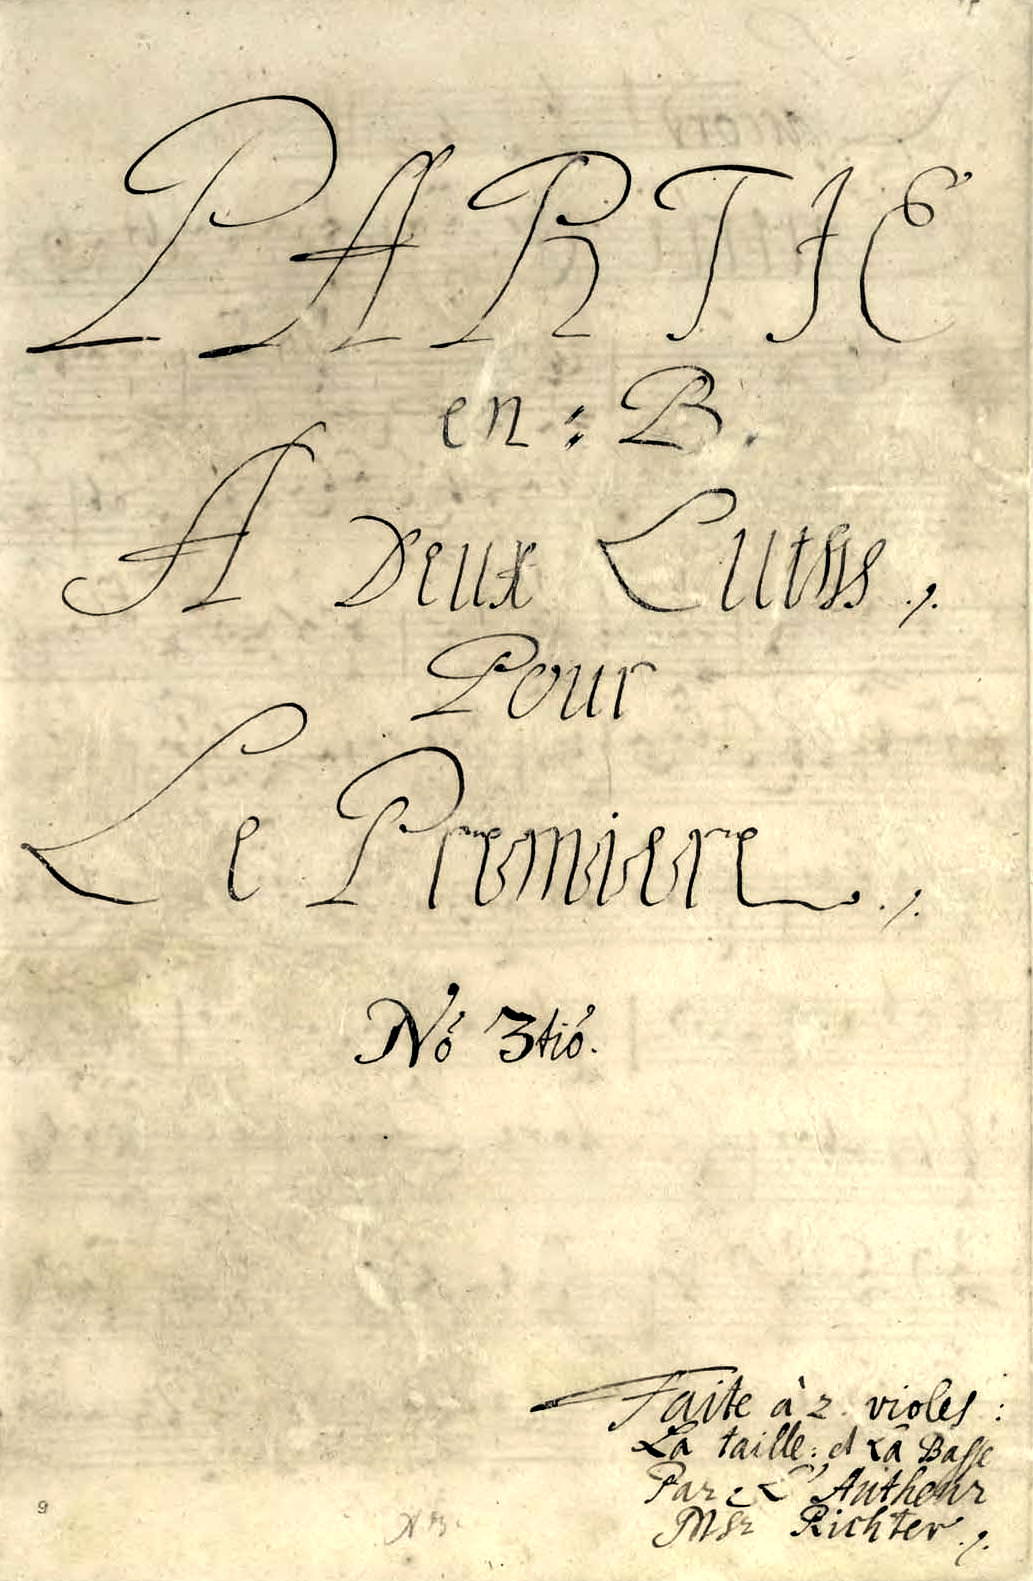 PARTIE
en : B.
A Deux Luths ./.
Pour
Le Premiere ./.
No 3tio.
Faite à 2. violes :
La taille : et La Basse
Par : L'Autheur
Msr Richter ./.
9